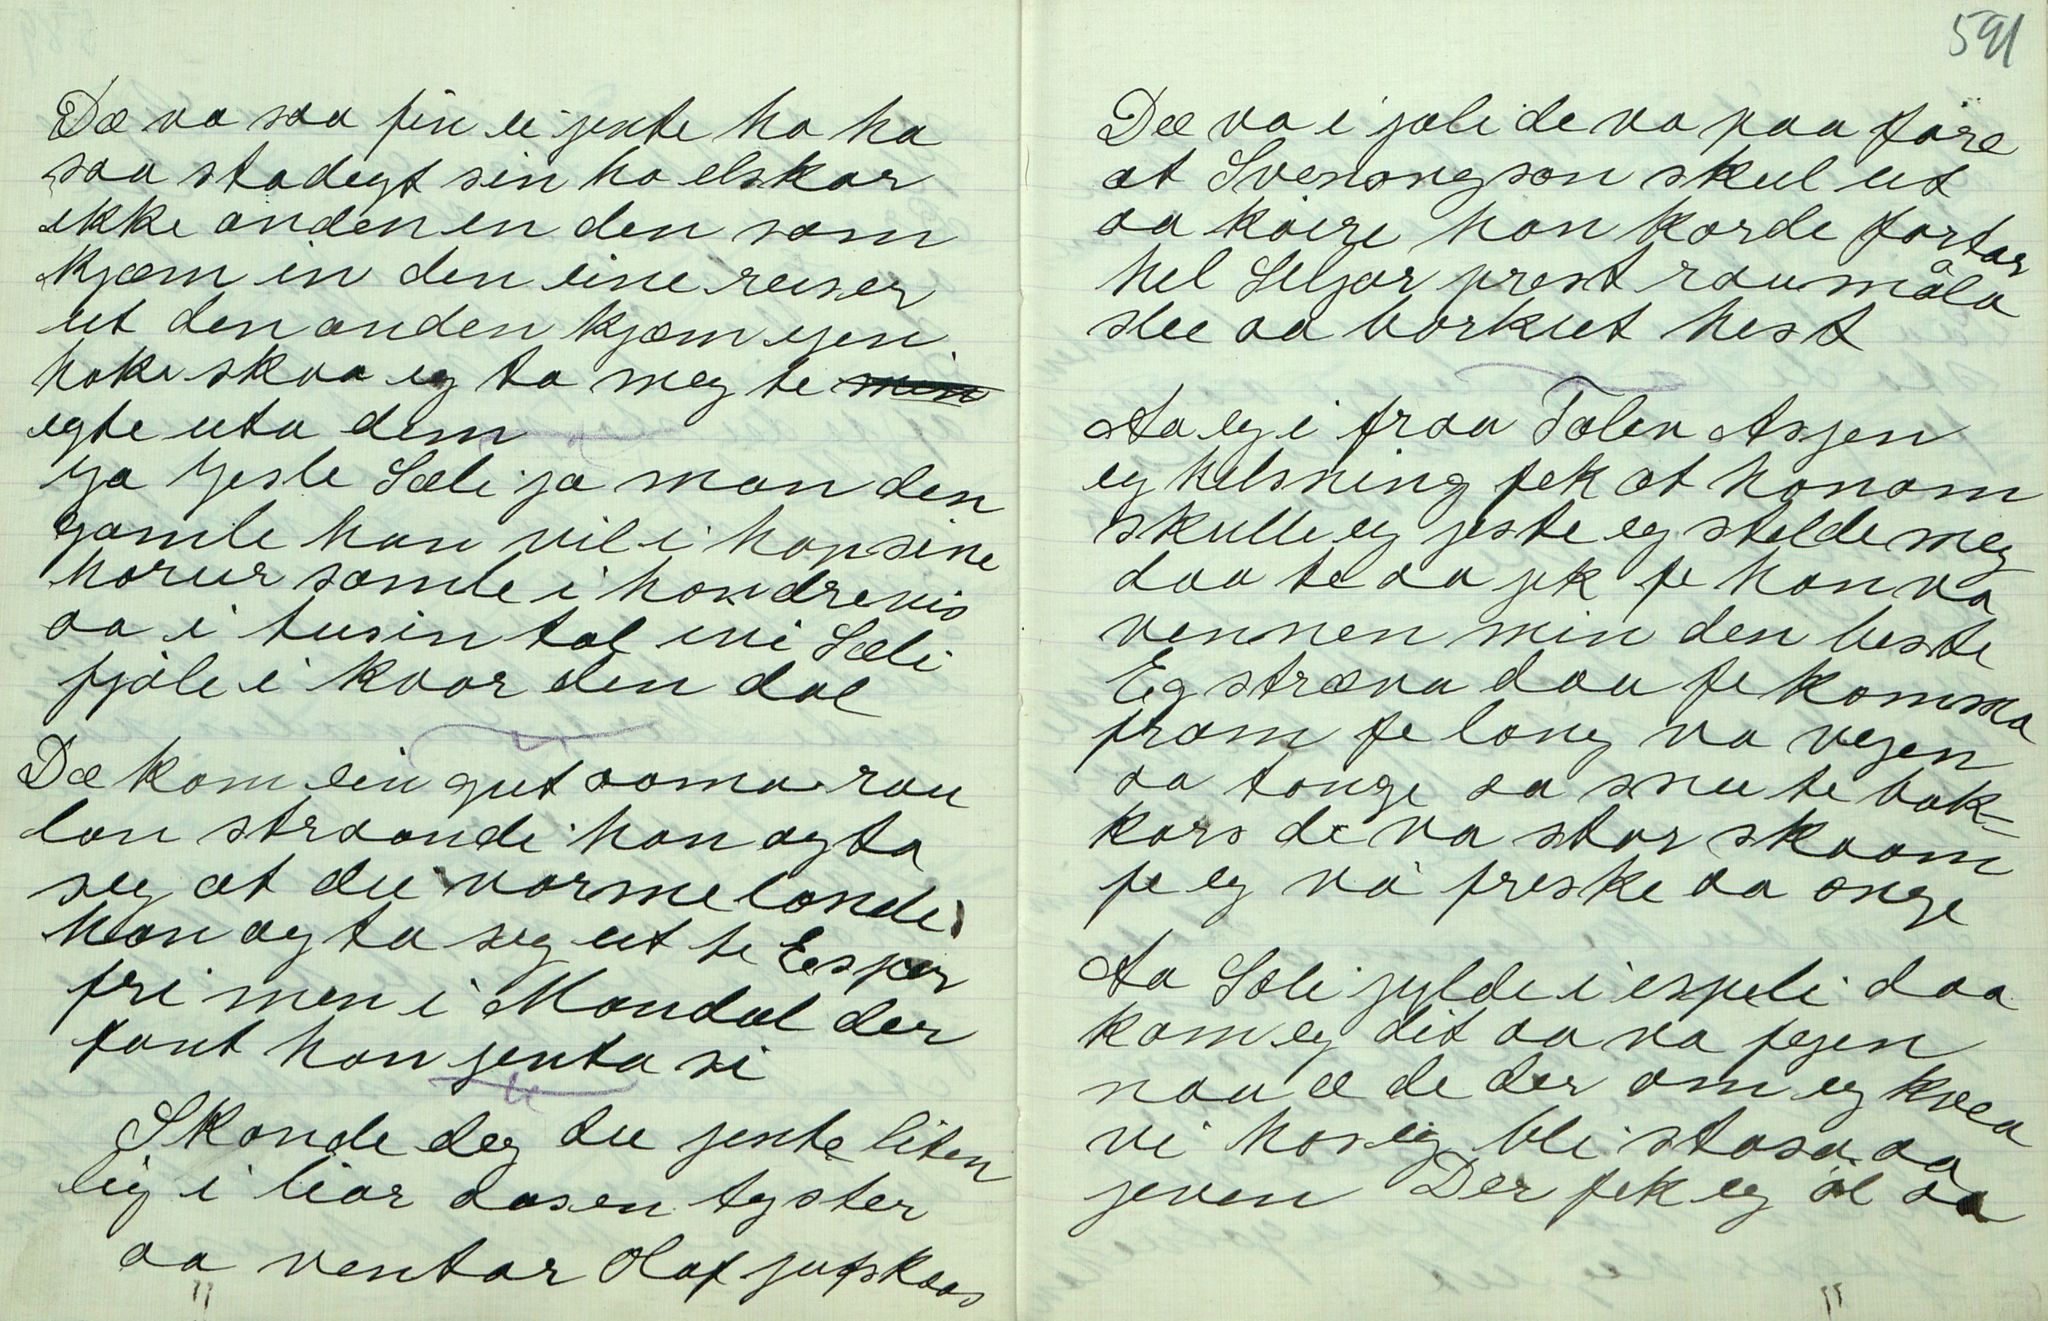 Dæ va saa fin ei jente ha ha
saa stadegt sin ho elskar
ikke anden en den som
kjæm in den eine reiser
ut den anden kjæm igen
hoke skaa eg ta meg te
egte uta dem
Ja Jesle Sæli ja man den
gamle han vil i hop sine
horur samle i hondrevis
aa i tusin tal ivi Sæli
fjøle i kvar den dal
Dæ kom ein gut aama rau
lan straande han agta
seg at dei varme lande
han agta seg ut te Esper
fri men i Mandal der
fant han jenta si
Skonde deg du jente liten
lig i liar aasen tyster
aa ventar Olaf jufskaas
591
Dæ va i jæli de va paa føre
at Svenongson skul ut
aa køire han kørde fortar
hel Seljor prest raumåla
slee aa borkut hest
Aa eg i fraa Tælen Asjen
eg helsning fek at honom
skulle eg jeste eg stelde meg
daa te aa jek fe han va
vennen min den beste
Eg stræva daa fe komma
fram fe lang va vegen
aa tonge aa snu te bak-
kars de va stor skaam
fe eg va freske aa onge
Aa Sæli jylde i espeli daa
kom eg dit aa va fegen
naa æ de der om eg kvea
vi hos eg bli stasa aa
jeven Der fek eg øl aa